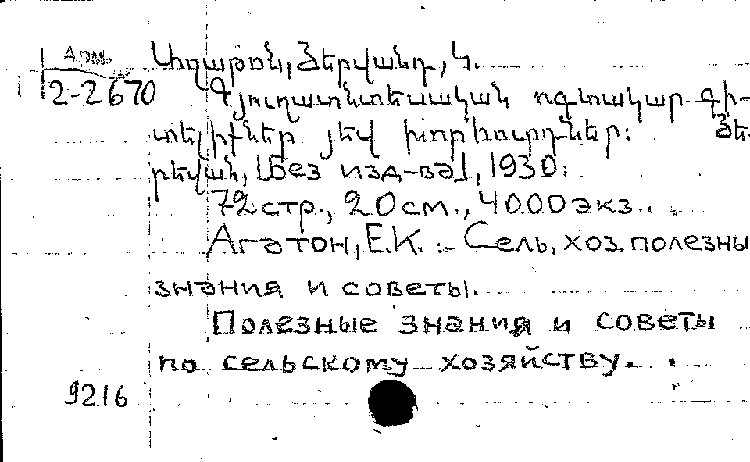 Арм.
2-2670
Աղաթոն, Յերվանդ, Կ.
Գյուղատնտեսական ոգտակար գի-
տելիքներ յեվ խորհուրդներ: Յե-
րեվան, [Без изд-ва], 1930.
72 стр., 20 см., 4000 экз.
Агатон, Е.К. Сель. хоз. полезны
знания и советы.
Полезные знания и советы
по сельскому хозяйству.
9216